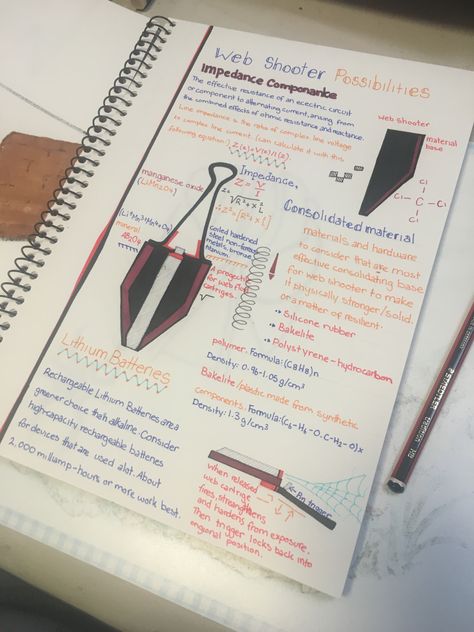 Web Shooter Possibilities
Impedance Componanke
The effective resistance of an ecectric circuit
or component to alternating current, arising from
the combined effects of ohmic resistance and reactance.
Line impedance is the ratio of complex line voltage
to complex line current (can calculate it with this
following equation) Z(z)=V(z)/I(z).
web shooter
material
base
Cl
Cl
Cl
C
Cl
Impedance,
Z = V/I
manganese oxide
(LiMn2O4)
mineral
coiled hardened
steel non-ferrous
metals, bronze,
titanium.
A projectile
for web fluid
catriges.
Consolidated material
materials and hardware
to consider that are most
effective consolidating base
for web shooter to make
it physically stronger/solid.
or a matter of resilient.
Silicone rubber
Bakelite
Polystyrene-hydrocarbon
polymer. Formula:(C8H8)n
Density: 0.96-1.05g/cm³
Bakelite/plastic made from synthetic
components. Formula:(C6-H6-O.C-H2-O)x
Density: 1.3g/cm³
Lithium Batteries
Rechargeable Lithium Batteries are a
greener choice than alkaline. Consider
high-capacity rechargeable batteries
for devices that are used alot. About
2,000 milliamp-hours or more work best.
when released
web catrige
fires, strenghtens
and hardens from exposure.
Then trigger locks back into
origional position.
Pin trigger
STAEDTLER